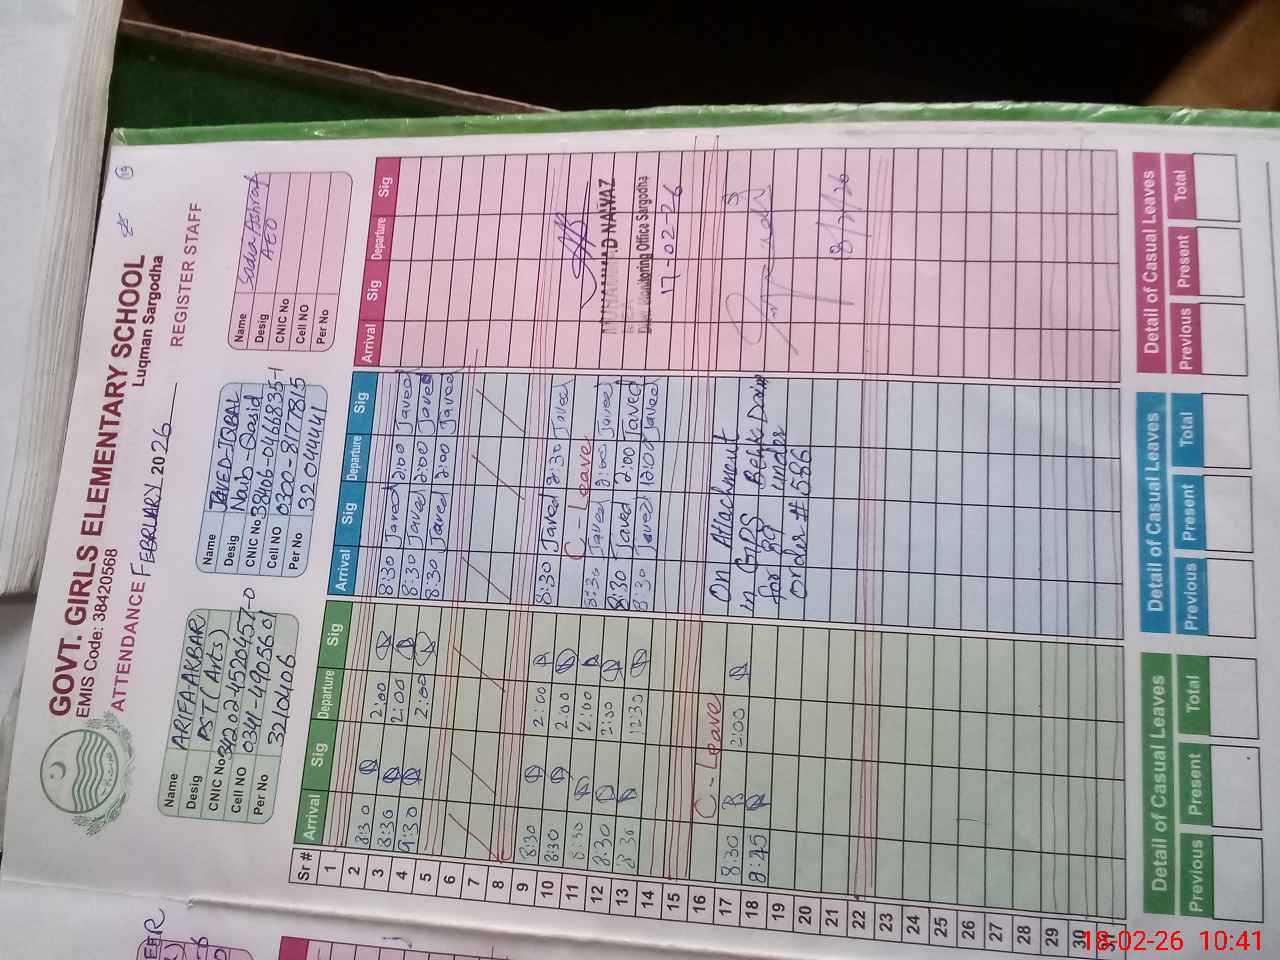 GOVT. GIRLS ELEMENTARY SCHOOL
EMIS Code: 38420568
Luqman Sargodha
ATTENDANCE FEBRUARY 2026
REGISTER STAFF
19
Name ARIFA AKBAR
Desig PST (Arts)
CNIC No 34202-4520457-0
Cell NO 0341-4905601
Per No 3210406
Name JAVED IQBAL
Desig Naib-Qasid
CNIC No 38406-0466835-1
Cell NO 0300-8177815
Per No 32044441
Name Sadia Ashraf
Desig AEO
CNIC No
Cell NO
Per No
Sr# Arrival Sig Departure Sig Arrival Sig Departure Sig Arrival Sig Departure Sig
1
2
3 8:30 2:00 8:30 Javed 2:00 Javed
4 8:30 2:00 8:30 Javed 2:00 Javed
5 9:30 2:00 8:30 Javed 2:00 Javed
6
7
8
9
10 8:30 2:00 8:30 Javed 2:30 Javed
11 8:30 2:00 C-Leave
12 8:30 2:00 8:30 Javed 2:00 Javed
13 8:30 2:00 8:30 Javed 2:00 Javed
14 8:30 12:30 8:30 Javed 12:00 Javed
15
16
17 C-Leave On Attachment
18 8:30 2:00 in GGPS Behk Daim
19 8:45 for 89 under
20 Order # 586
21
22
23
24
25
26
27
28
29
30
31
MUHAMMAD NAWAZ
Distt. Monitoring Office Sargodha
17-02-26
18/2/26
Detail of Casual Leaves
Previous Present Total
Detail of Casual Leaves
Previous Present Total
Detail of Casual Leaves
Previous Present Total
18-02-26 10:41